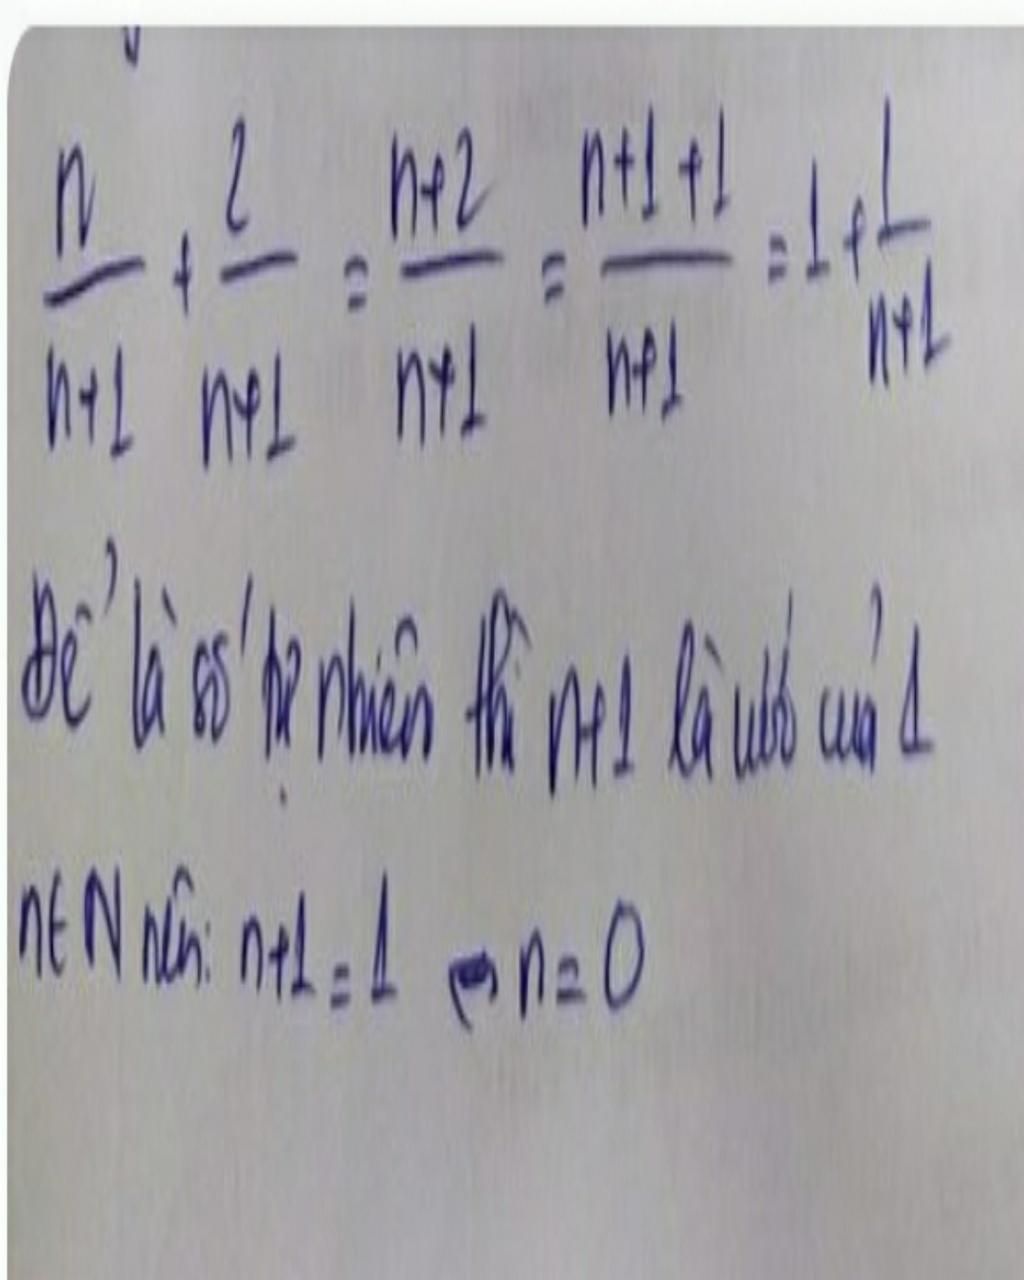 n/n+1 + 2/n+1 = n+2/n+1 = n+1+1/n+1 = 1 + 1/n+1
Để là số tự nhiên thì n+1 là ước của 1
n∈N nên: n+1=1 ⇔ n=0